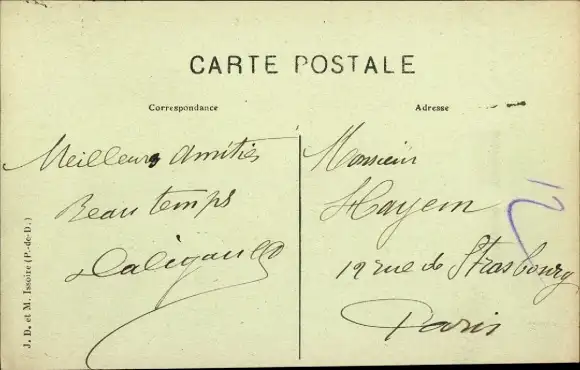 CARTE POSTALE
Correspondance
Adresse
Meilleurs Amitiés
Beau temps
Monsieur
Hayem
12 rue de Strasbourg
Paris
J. D. et M. Issoire (P.-de-D.)